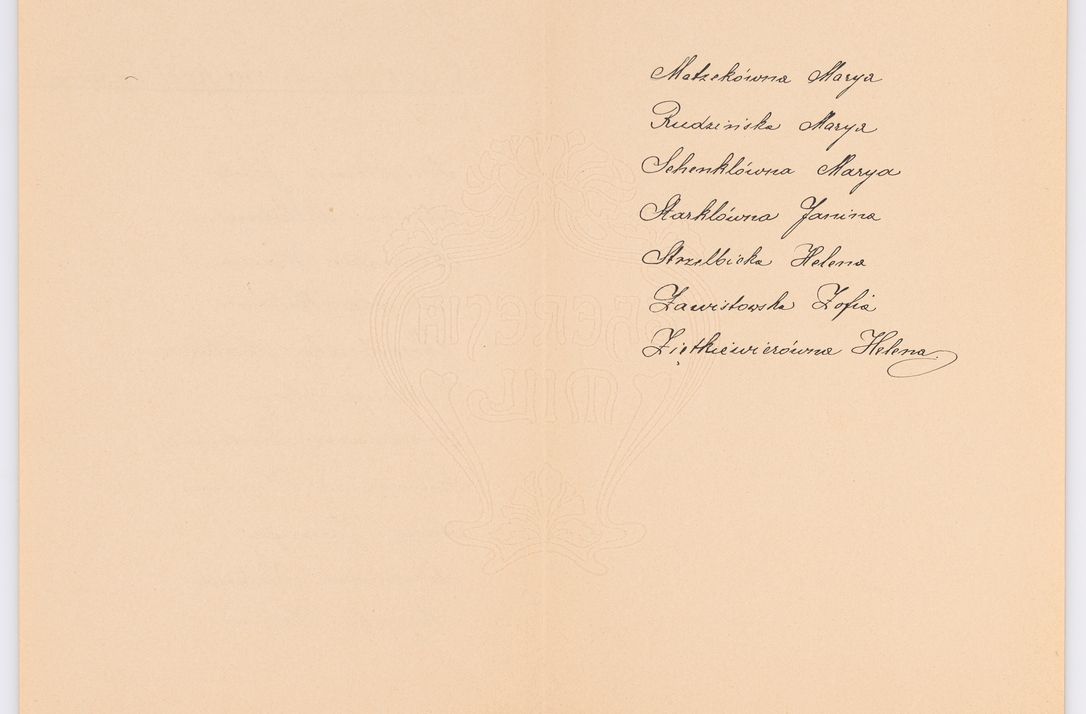 Matzekówna Marya
Rudzińska Marya
Schenklówna Marya
Starklówna Janina
Strzelbicka Helena
Zawistowska Zofia
Ziętkiewiczówna Helena